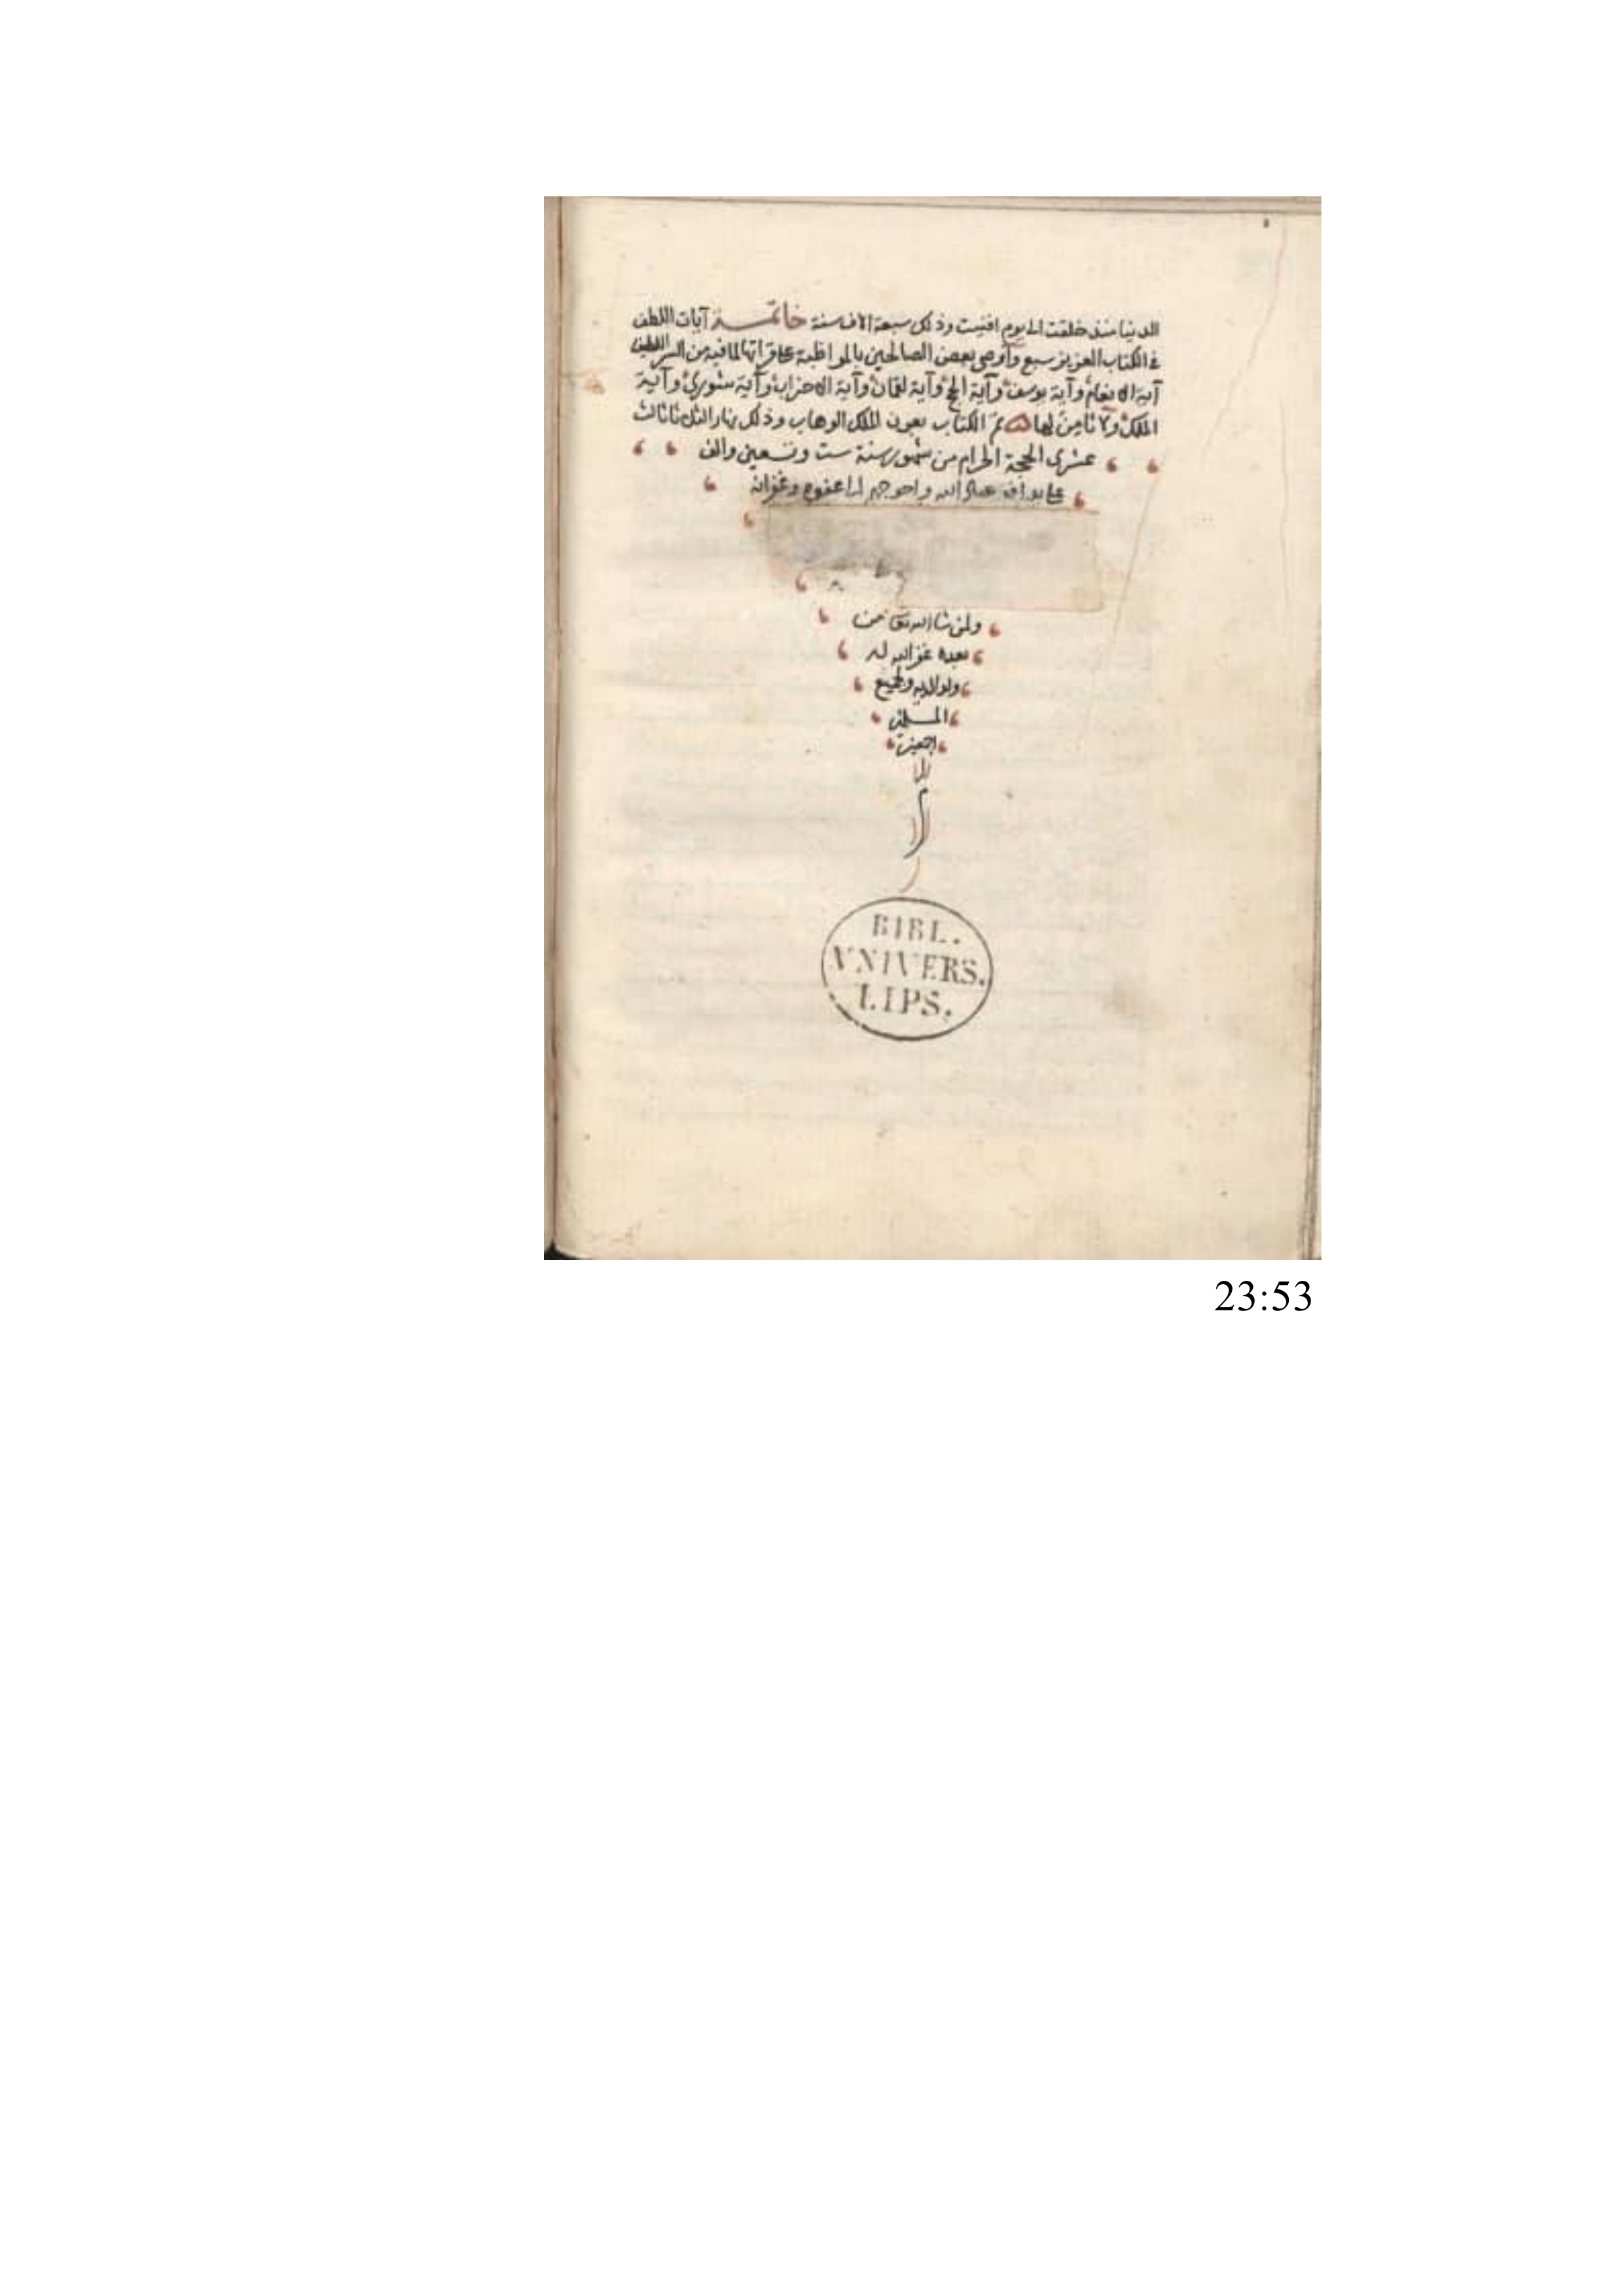 الدنيا منذ خلقت الى يوم افنيت وذلك سبعة الاف سنة خاتمة آيات اللطف
في الكتاب العزيز سبع وأوصى بعض الصالحين بالمواظبة على قراتها لما فيه من السر اللطيف
آية الانعام وآية يوسف وآية الحج وآية لقمان وآية الاحزاب وآية شورى وآية
الملك ولا ثامن لها تم الكتاب بعون الملك الوهاب وذلك نهار الثلاثا ثالث
عشرى الحجة الحرام من شهور سنة ست وتسعين والف
على يد افقر عباد الله واحوجهم الى عفوه وغفرانه
ولمن شا الله تعالى من
بعده غفر الله له
ولوالديه ولجميع
المسلمين
اجمعين
BIBL.
VNIVERS.
LIPS.
23:53